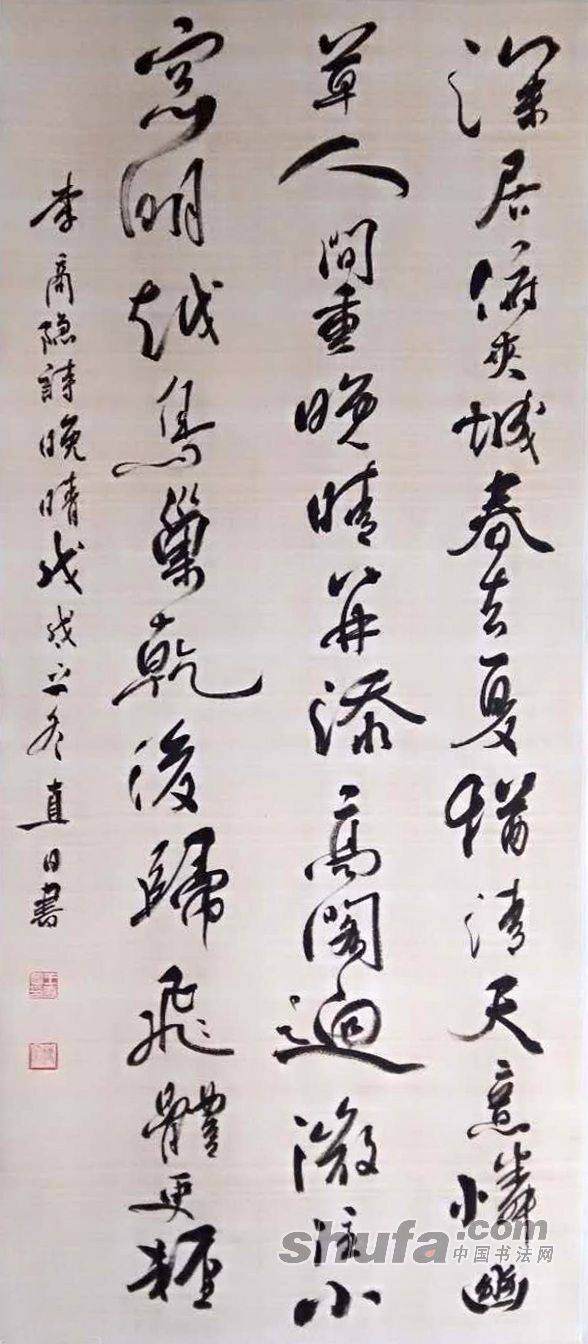 深居俯夾城春去夏猶清天意憐幽
草人間重晚晴并添高閣迥微注小
窓明越鳥巢乾後歸飛體更輕
李商隐詩晚晴戊戌之冬直日書
shufa.com
中国书法网